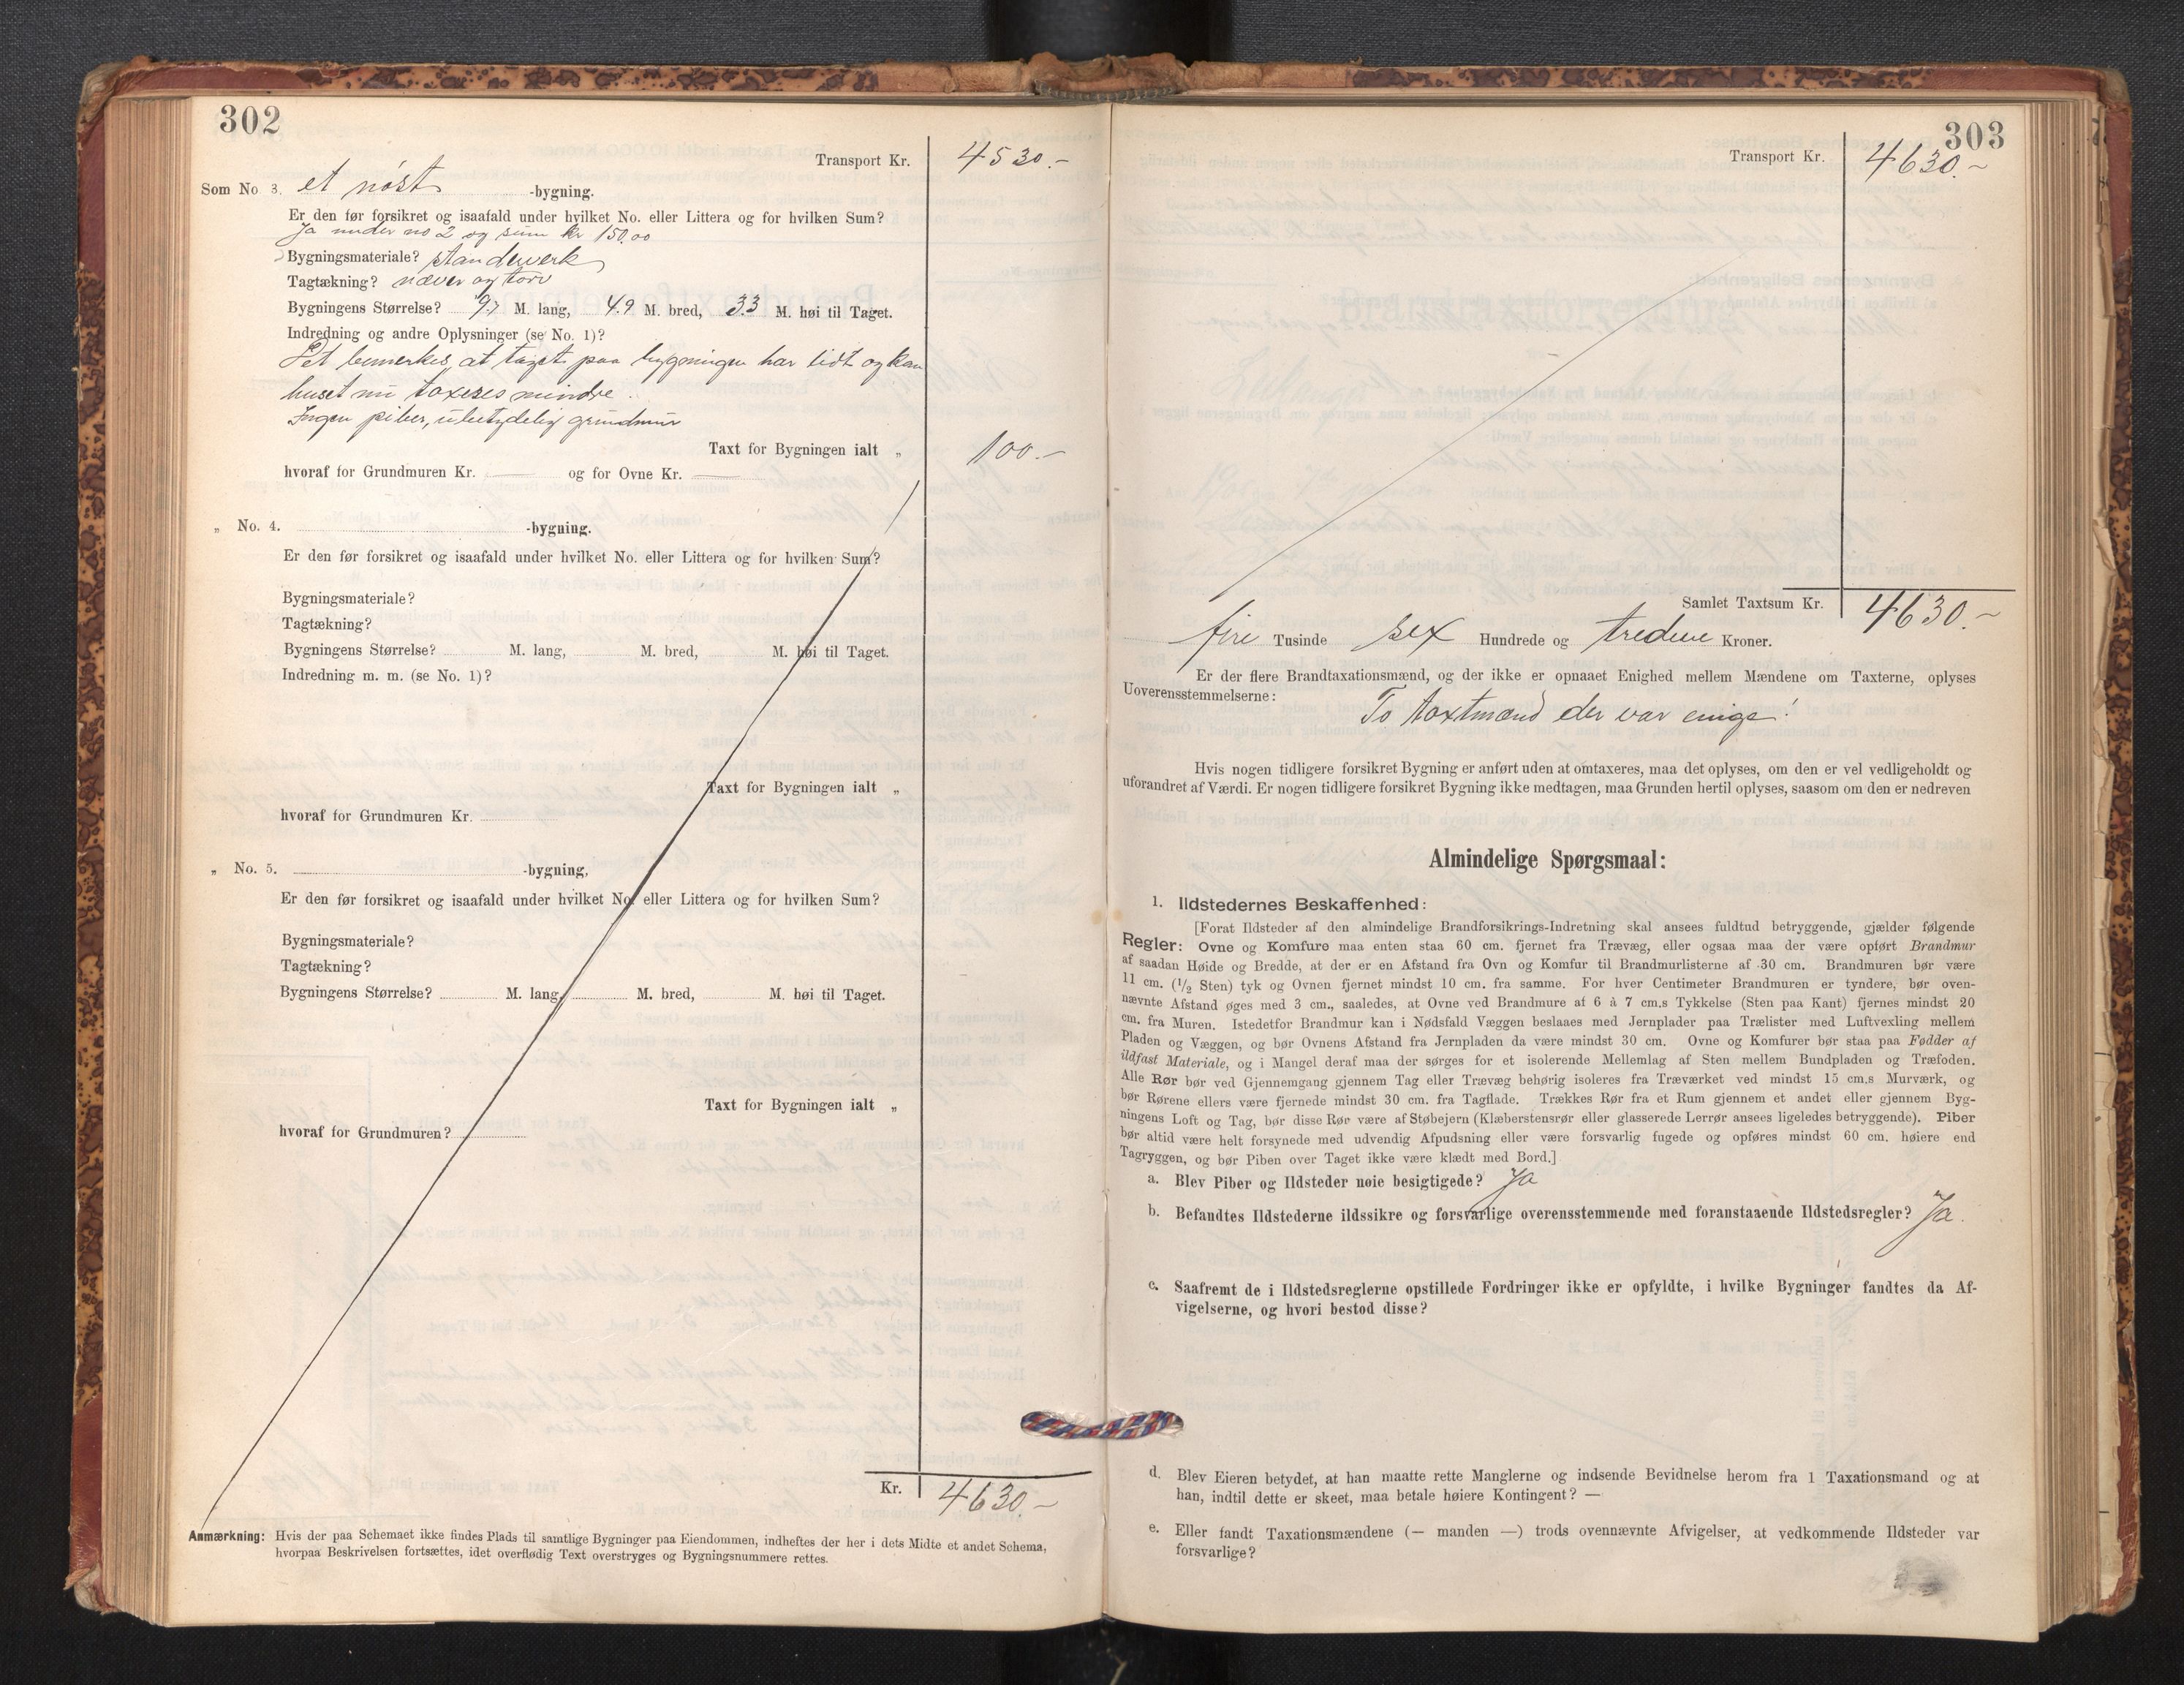 302
Transport Kr. 4530.-
Som No 3. et nøst -bygning.
Er den før forsikret og isaafald under hvilket No. eller Littera og for hvilken Sum?
Ja under no 2 og sum kr 150.00
Bygningsmateriale? standverk
Tagtækning? næver og torv
Bygningens Størrelse? 9.7 M. lang, 4.9 M. bred, 3.3 M. høi til Taget.
Indredning og andre Oplysninger (se No. 1)?
Det bemerkes, at taget paa bygningen har lidt og kan
huset nu taxeres mindre.
Ingen piber, ubetydelig grundmur
Taxt for Bygningen ialt „ 100.-
hvoraf for Grundmuren Kr. — og for Ovne Kr. —
„ No. 4. -bygning.
Er den før forsikret og isaafald under hvilket No. eller Littera og for hvilken Sum?
Bygningsmateriale?
Tagtækning?
Bygningens Størrelse? M. lang, M. bred, M. høi til Taget.
Indredning m. m. (se No. 1)?
Taxt for Bygningen ialt „
hvoraf for Grundmuren Kr.
„ No. 5. -bygning,
Er den før forsikret og isaafald under hvilket No. eller Littera og for hvilken Sum?
Bygningsmateriale?
Tagtækning?
Bygningens Størrelse? M. lang, M. bred, M. høi til Taget.
Taxt for Bygningen ialt „
hvoraf for Grundmuren?
Kr. 4630 -
Anmærkning: Hvis der paa Schemaet ikke findes Plads til samtlige Bygninger paa Eiendommen, indheftes der her i dets Midte et andet Schema,
hvorpaa Beskrivelsen fortsættes, idet overflødig Text overstryges og Bygningsnummere rettes.
303
Transport Kr. 4630.-
Samlet Taxtsum Kr. 4630.-
fire Tusinde sex Hundrede og tredeve Kroner.
Er der flere Brandtaxationsmænd, og der ikke er opnaaet Enighed mellem Mændene om Taxterne, oplyses
Uoverensstemmelserne:
To taxtmænd der var enige!
Hvis nogen tidligere forsikret Bygning er anført uden at omtaxeres, maa det oplyses, om den er vel vedligeholdt og
uforandret af Værdi. Er nogen tidligere forsikret Bygning ikke medtagen, maa Grunden hertil oplyses, saasom om den er nedreven
Almindelige Spørgsmaal:
1. Ildstedernes Beskaffenhed:
[Forat Ildsteder af den almindelige Brandforsikrings-Indretning skal ansees fuldtud betryggende, gjælder følgende
Regler: Ovne og Komfure maa enten staa 60 cm. fjernet fra Trævæg, eller ogsaa maa der være opført Brandmur
af saadan Høide og Bredde, at der er en Afstand fra Ovn og Komfur til Brandmurlisterne af 30 cm. Brandmuren bør være
11 cm. (1/2 Sten) tyk og Ovnen fjernet mindst 10 cm. fra samme. For hver Centimeter Brandmuren er tyndere, bør oven-
nævnte Afstand øges med 3 cm., saaledes, at Ovne ved Brandmure af 6 à 7 cm.s Tykkelse (Sten paa Kant) fjernes mindst 20
cm. fra Muren. Istedetfor Brandmur kan i Nødsfald Væggen beslaaes med Jernplader paa Trælister med Luftvexling mellem
Pladen og Væggen, og bør Ovnens Afstand fra Jernpladen da være mindst 30 cm. Ovne og Komfurer bør staa paa Fødder af
ildfast Materiale, og i Mangel deraf maa der sørges for et isolerende Mellemlag af Sten mellem Bundpladen og Træfoden.
Alle Rør bør ved Gjennemgang gjennem Tag eller Trævæg behørig isoleres fra Træværket ved mindst 15 cm.s Murværk, og
bør Rørene ellers være fjernede mindst 30 cm. fra Tagflade. Trækkes Rør fra et Rum gjennem et andet eller gjennem Byg-
ningens Loft og Tag, bør disse Rør være af Støbejern (Klæberstensrør eller glasserede Lerrør ansees ligeledes betryggende). Piber
bør altid være helt forsynede med udvendig Afpudsning eller være forsvarlig fugede og opføres mindst 60 cm. høiere end
Tagryggen, og bør Piben over Taget ikke være klædt med Bord.]
a. Blev Piber og Ildsteder nøie besigtigede? Ja
b. Befandtes Ildstederne ildssikre og forsvarlige overensstemmende med foranstaaende Ildstedsregler? Ja.
c. Saafremt de i Ildstedsreglerne opstillede Fordringer ikke er opfyldte, i hvilke Bygninger fandtes da Af-
vigelserne, og hvori bestod disse?
d. Blev Eieren betydet, at han maatte rette Manglerne og indsende Bevidnelse herom fra 1 Taxationsmand og at
han, indtil dette er skeet, maa betale høiere Kontingent? —
e. Eller fandt Taxationsmændene (— manden —) trods ovennævnte Afvigelser, at vedkommende Ildsteder var
forsvarlige?